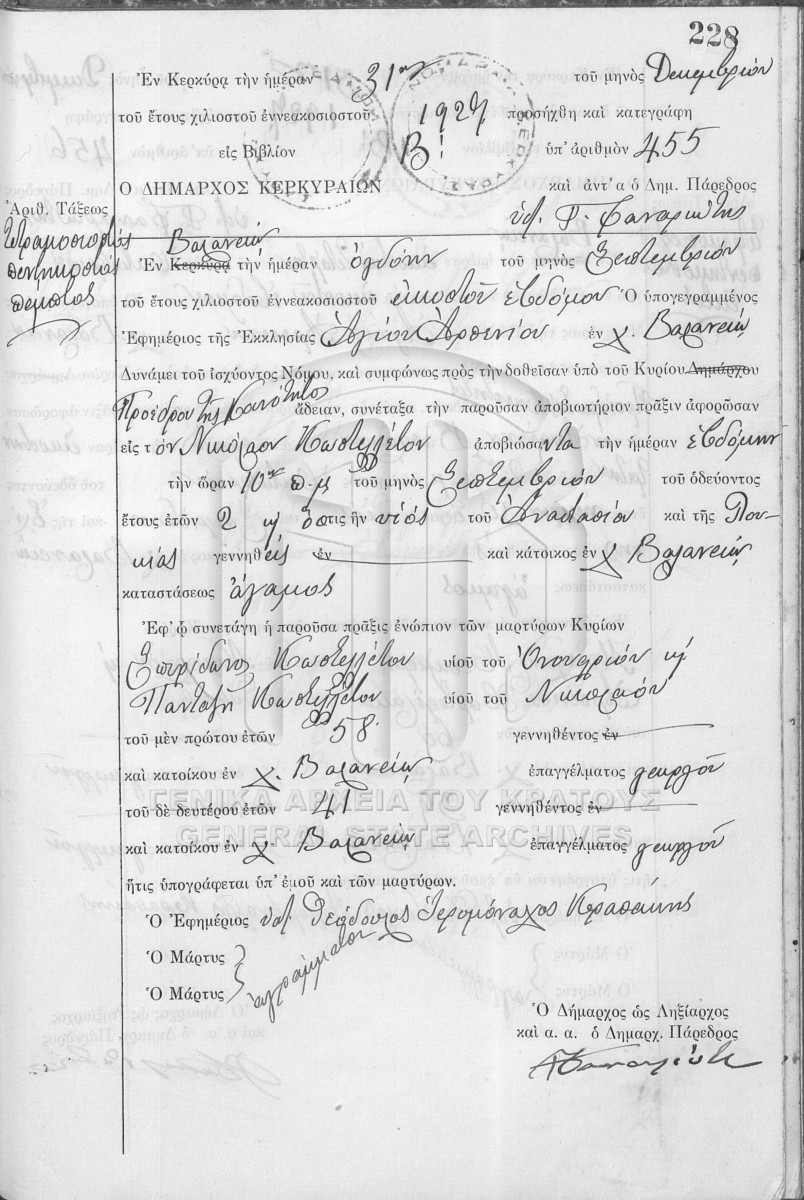 228
Ἐν Κερκύρᾳ τὴν ἡμέραν 31ην τοῦ μηνὸς Δεκεμβρίου
τοῦ ἔτους χιλιοστοῦ ἐννεακοσιοστοῦ 1927 προσήχθη καὶ κατεγράφη
εἰς Βιβλίον Β! ὑπ' ἀριθμὸν 455
Ο ΔΗΜΑΡΧΟΣ ΚΕΡΚΥΡΑΙΩΝ καὶ ἀντ' α ὁ Δημ. Πάρεδρος
Ἀριθ. Τάξεως
τετρακοσιοστός
πεντηκοστός
πέμπτος
Βαλανειῷ
Ἐν Κερκύρᾳ τὴν ἡμέραν ὀγδόην τοῦ μηνὸς Σεπτεμβρίου
τοῦ ἔτους χιλιοστοῦ ἐννεακοσιοστοῦ εἰκοστοῦ ἑβδόμου Ὁ ὑπογεγραμμένος
Ἐφημέριος τῆς Ἐκκλησίας Ἁγίου Ἀρσενίου ἐν χ. Βαλανειῷ
Δυνάμει τοῦ ἰσχύοντος Νόμου, καὶ συμφώνως πρὸς τὴν δοθεῖσαν ὑπὸ τοῦ Κυρίου Δημάρχου
Προέδρου τῆς Κοινότητος ἄδειαν, συνέταξα τὴν παροῦσαν ἀποβιωτήριον πρᾶξιν ἀφορῶσαν
εἰς τὸν Νικόλαον Κωστελλέτον ἀποβιώσαντα τὴν ἡμέραν ἑβδόμην
τὴν ὥραν 10ην π.μ τοῦ μηνὸς Σεπτεμβρίου τοῦ ὁδεύοντος
ἔτους ἐτῶν 2 ὅστις ἦν υἱός τοῦ Ἀναστασίου καὶ τῆς Λου-
κίας γεννηθείς ἐν καὶ κάτοικος ἐν χ Βαλανειῷ
καταστάσεως ἄγαμος
Ἐφ' ᾧ συνετάγη ἡ παροῦσα πρᾶξις ἐνώπιον τῶν μαρτύρων Κυρίων
Σπυρίδωνος Κωστελλέτου υἱοῦ τοῦ Ὀνουφρίου
Παντάζη Κωστελλέτου υἱοῦ τοῦ Νικολάου
τοῦ μὲν πρώτου ἐτῶν 58 γεννηθέντος ἐν
καὶ κατοίκου ἐν χ. Βαλανειῷ ἐπαγγέλματος γεωργοῦ
τοῦ δὲ δευτέρου ἐτῶν 41 γεννηθέντος ἐν
καὶ κατοίκου ἐν χ. Βαλανειῷ ἐπαγγέλματος γεωργοῦ
ἥτις ὑπογράφεται ὑπ' ἐμοῦ καὶ τῶν μαρτύρων.
Ὁ Ἐφημέριος Θεόδωρος Ἱερομόναχος
Ὁ Μάρτυς
Ὁ Μάρτυς
ἀγράμματοι
Ὁ Δήμαρχος ὡς Ληξίαρχος
καὶ α. α. ὁ Δημαρχ. Πάρεδρος
ΓΕΝΙΚΑ ΑΡΧΕΙΑ ΤΟΥ ΚΡΑΤΟΥΣ
GENERAL STATE ARCHIVES